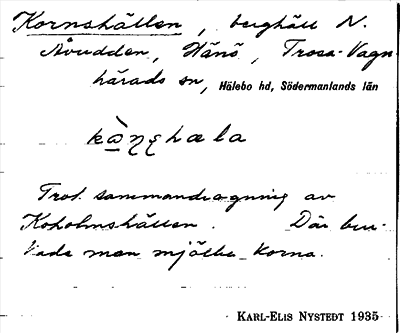 Kornshällen, berghäll N.
Åvudden, Hånö, Trosa-Vagn-
härads sn, Hälebo hd, Södermanlands län
kὰŋꞩhæla
Trol. sammandragning av
Koholmshällen. Där bru-
kade man mjölka korna.
KARL-ELIS NYSTEDT 1935